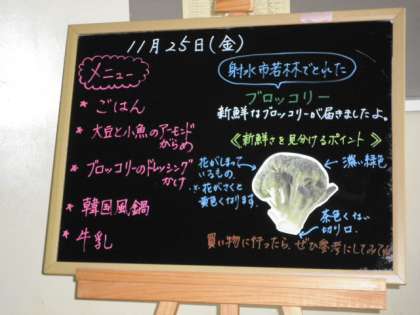 11月25日(金)
メニュー
* ごはん
* 大豆と小魚のアーモンド
がらめ
* ブロッコリーのドレッシング
かけ
* 韓国風鍋
* 牛乳
射水市若林でとれた
ブロッコリー
新鮮なブロッコリーが届きましたよ。
≪新鮮さを見分けるポイント≫
花がしまって
いるもの
※花がさくと
黄色くなります。
濃い緑色
茶色くない
切り口。
買い物に行ったら、ぜひ参考にしてみて